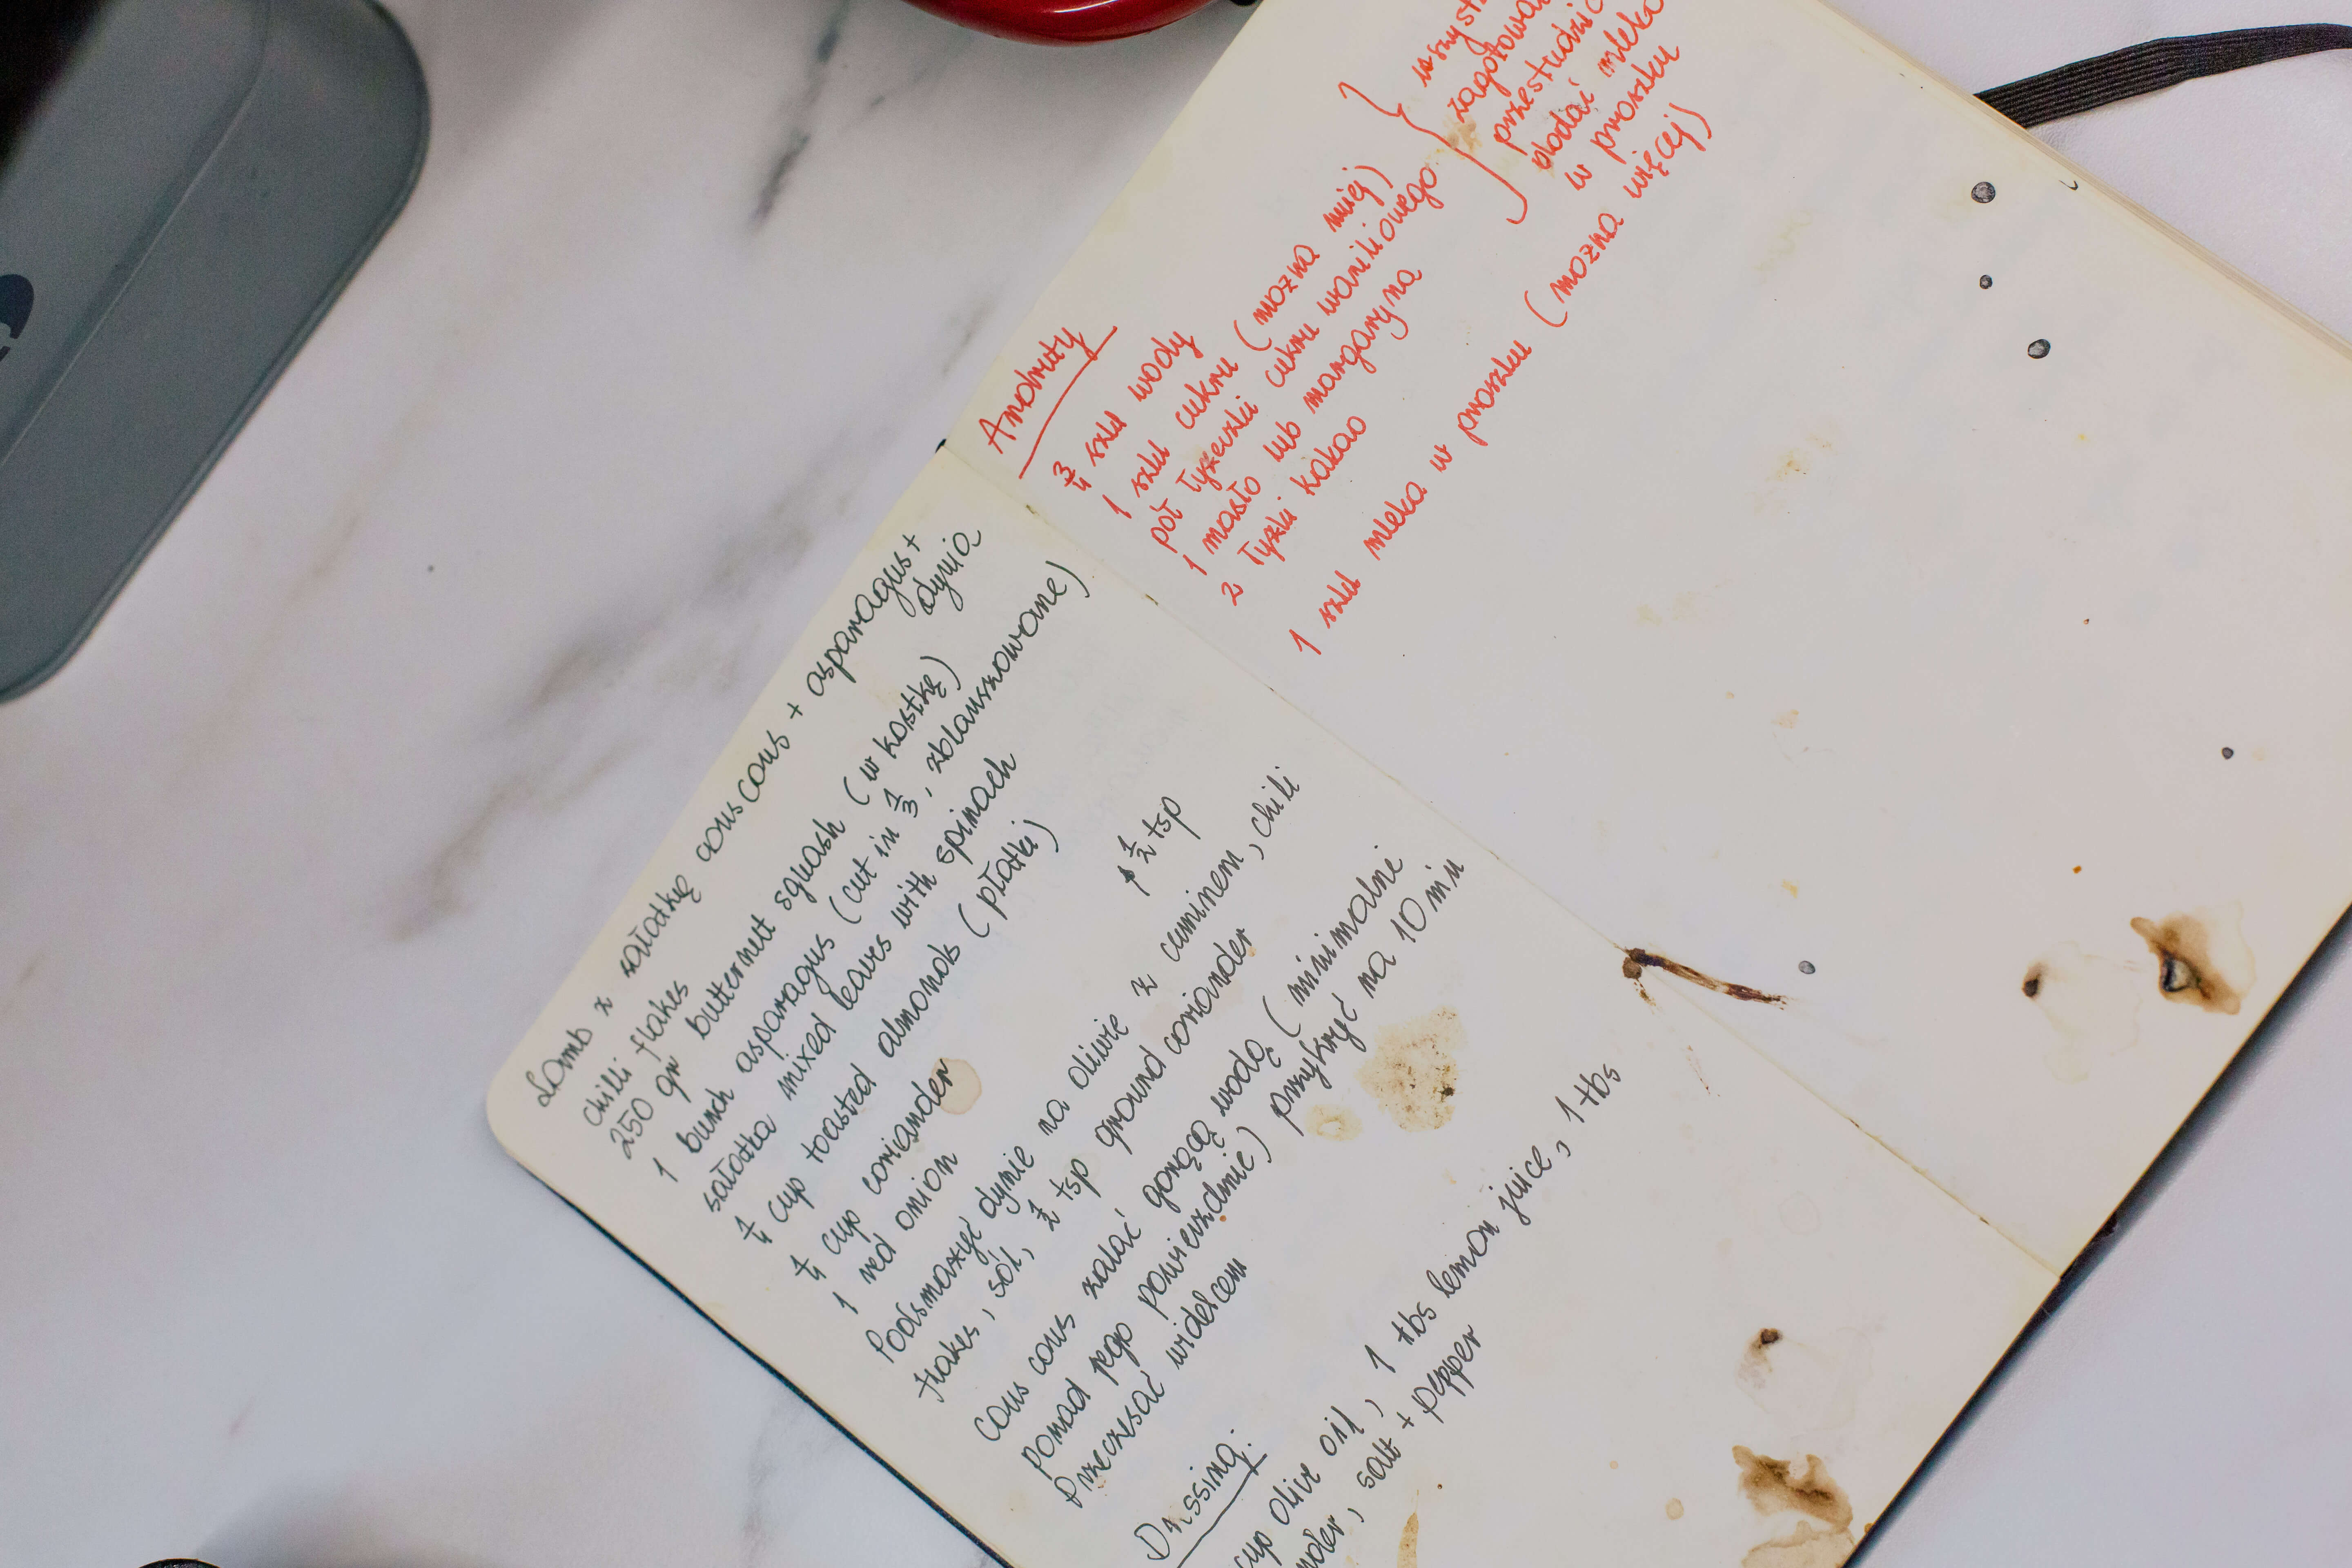 Andruty
3/4 szkl wody
1 szkl cukru (można mniej)
pół łyżeczki cukru waniliowego
1 masło lub margaryna
2 łyżki kakao
1 szkl mleka w proszku (można więcej)
przestudzić
dodać mleko
w proszku
Lamb z sałatką couscous + asparagus +
dynia
chilli flakes
250 gr butternut squash (w kostkę)
1 bunch asparagus (cut in 1/3, zblanszowane)
sałatka mixed leaves with spinach
1/4 cup toasted almonds (płatki)
1/4 cup coriander
1 red onion
1/2 tsp
Podsmażyć dynie na oliwie z cuminem, chili
flakes, sól, 1/2 tsp ground coriander
cous cous zalać gorącą wodą (minimalnie
ponad jego powierzchnie) przykryć na 10 min
Przeczesać widelcem
Dressing:
cup olive oil, 1 tbs lemon juice, 1 tbs
salt + pepper